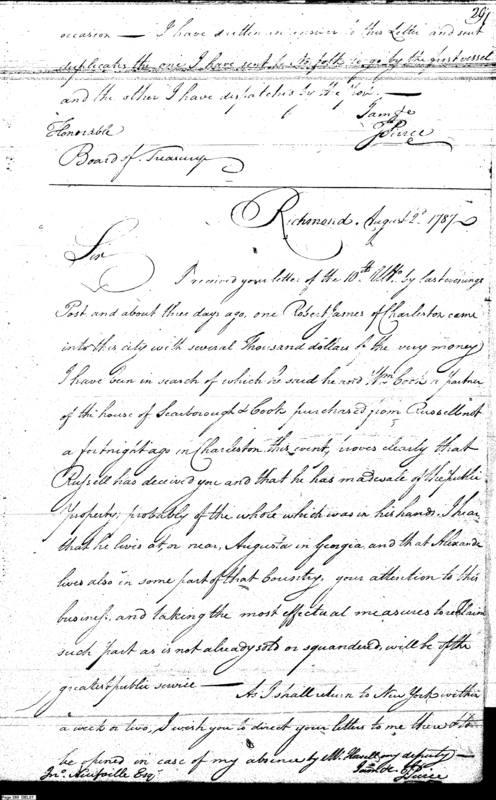 291
occasion — I have written in answer to this Letter and sent
duplicates the one I have sent to to go by the first vessel
and the other I have dispatched by the Post. —
I am &c
J Pierce
Honorable
Board of Treasury
Richmond. August 2d. 1787
Sir
I received your letter of the 10th. Ulto. by last evenings
Post and about three days ago, one Robert James of Charleston came
into this city with several Thousand dollars of the very money
I have been in search of which he said he and Wm. Cook a partner
of the house of Scarborough & Cook purchased from Russell not
a fortnight ago in Charleston. this event, proves clearly that
Russell has deceived you and that he has made sale of the Public
Property; probably of the whole which was in his hands. I hear
that he lives at, or near, Augusta in Georgia and that Alexander
lives also in some part of that Country, your attention to this
business, and taking the most effectual measures to reclaim
such part as is not already sold or squandered, will be of the
greatest public service — As I shall return to New York within
a week or two, I wish you to direct your letters to me there to
be opened in case of my absence by Mr. my deputy —
Jno. Neufville Esqr
I am &c
J Pierce